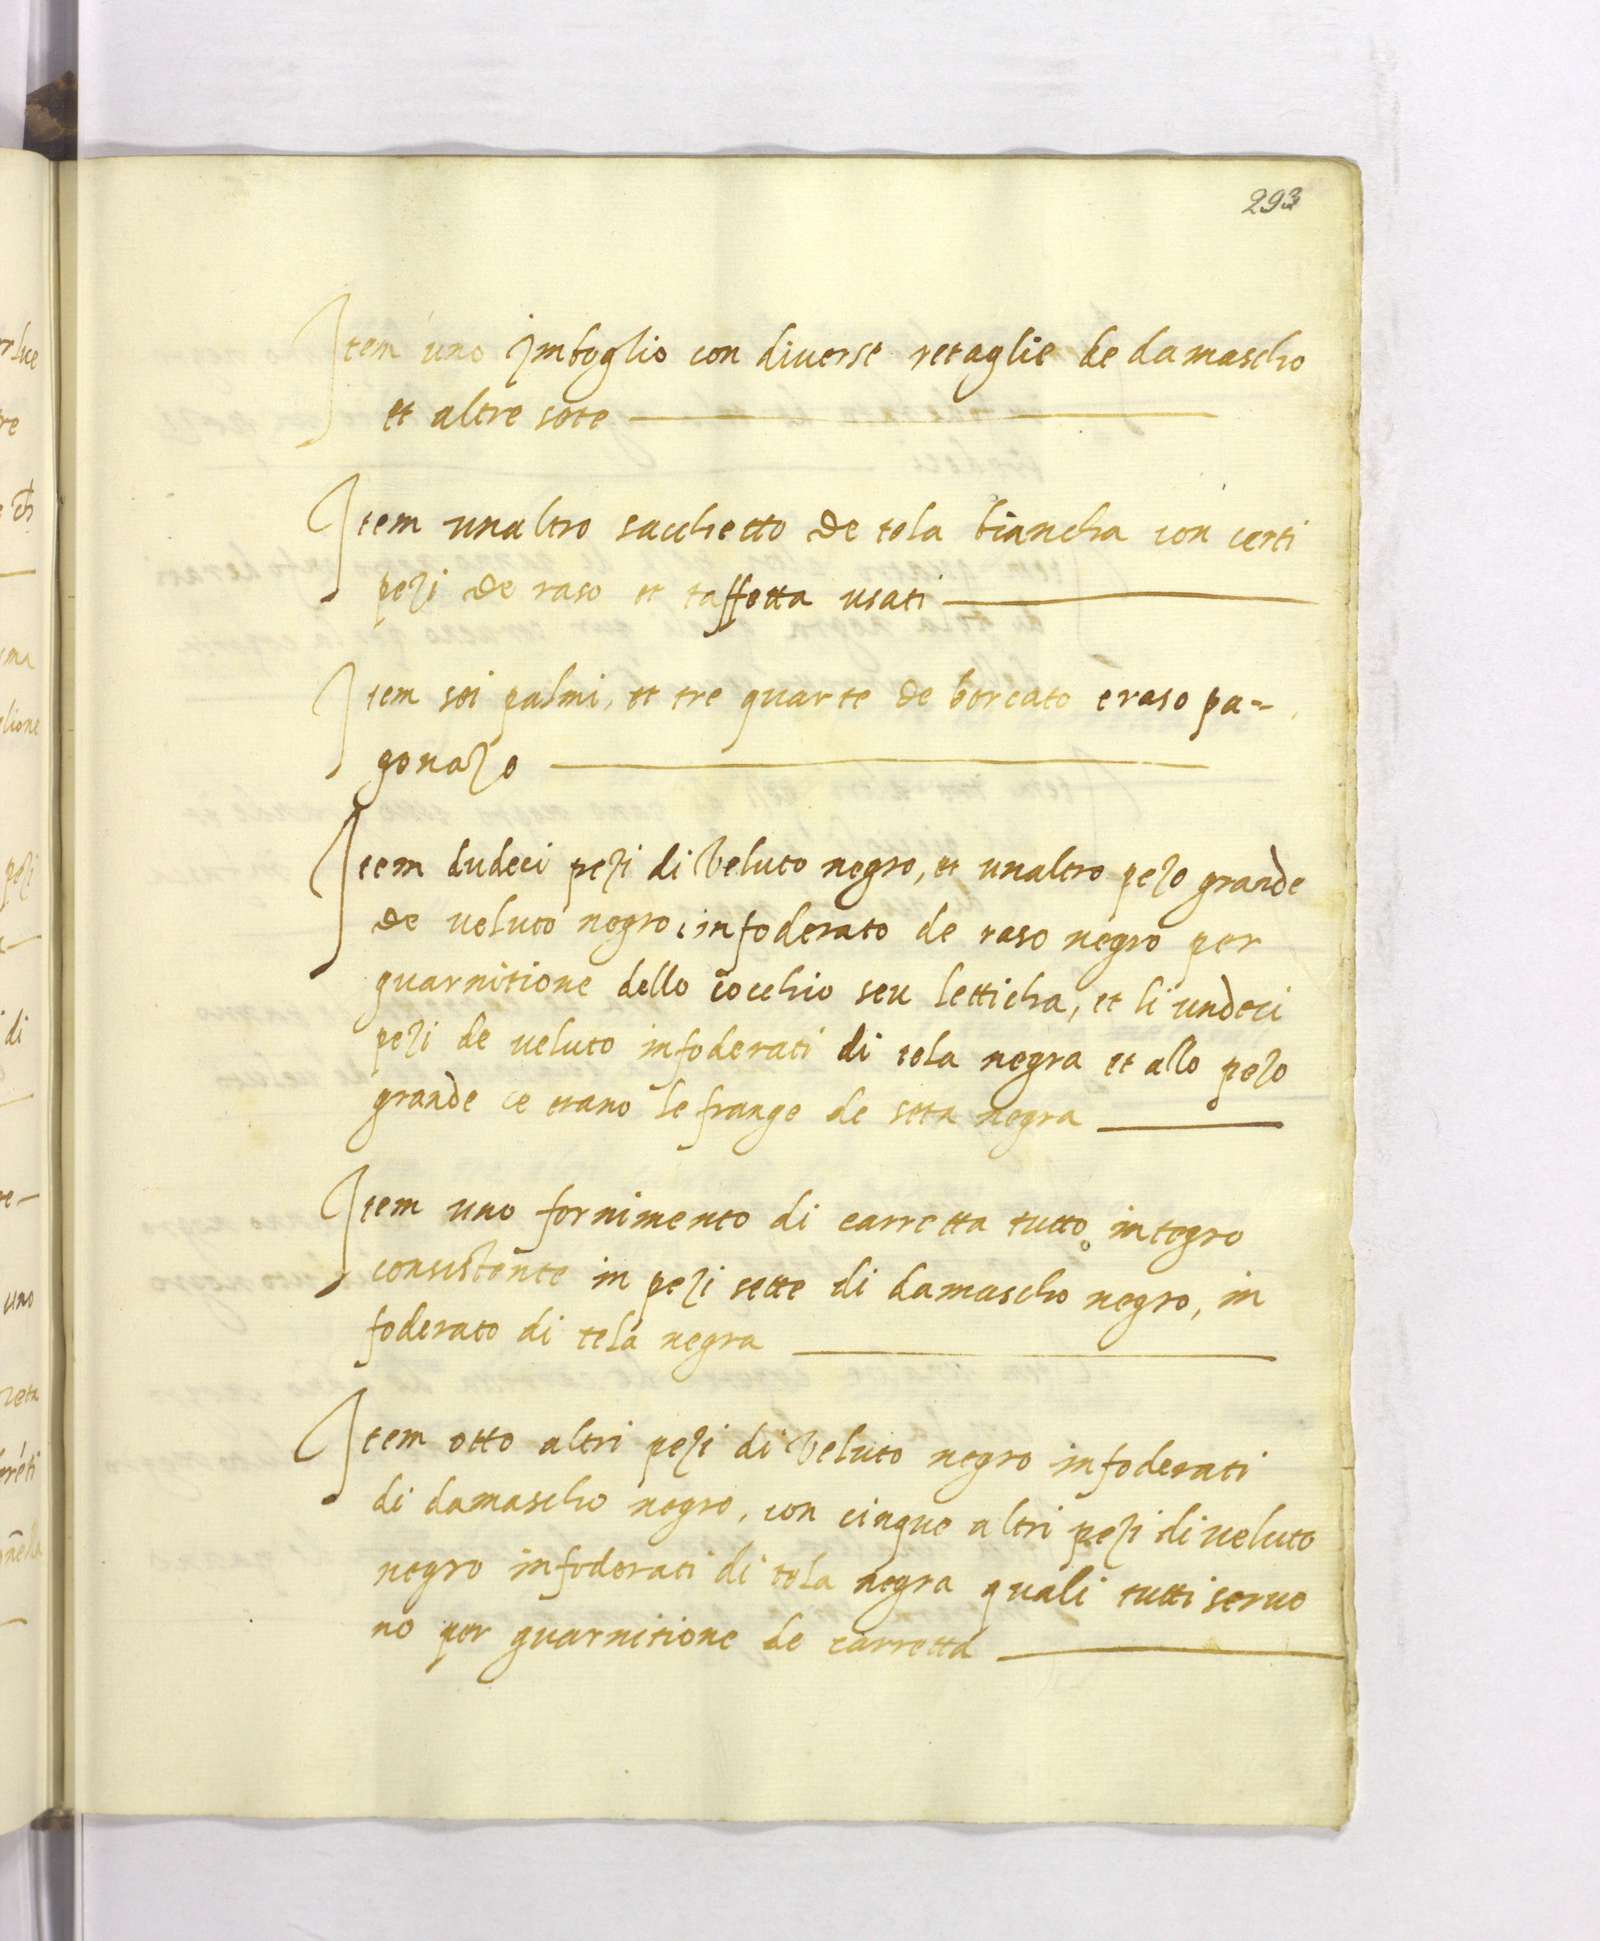 293
Item uno Imboglio con diverse retaglie de damascho
et altre sorte
Item unaltro sacchetto de tela biancha con certi
pezi de raso et taffetta usati
Item sei palmi, et tre quarte de borcato e raso pa=
gonazo
Item dudeci pezi di veluto negro, et unaltro pezo grande
de veluto negro, infoderato de raso negro per
guarnitione dello cocchio seu letticha, et li undeci
pezi de veluto infoderati di tela negra et allo pezo
grande ce erano le frange de seta negra
Item uno fornimento di carretta tutto integro
consistente in pezi sette di damascho negro, in
foderato di tela negra
Item otto altri pezi di veluto negro infoderati
di damascho negro, con cinque altri pezi di veluto
negro infoderati di tela negra quali tutti serve
no per guarnitione de carretta